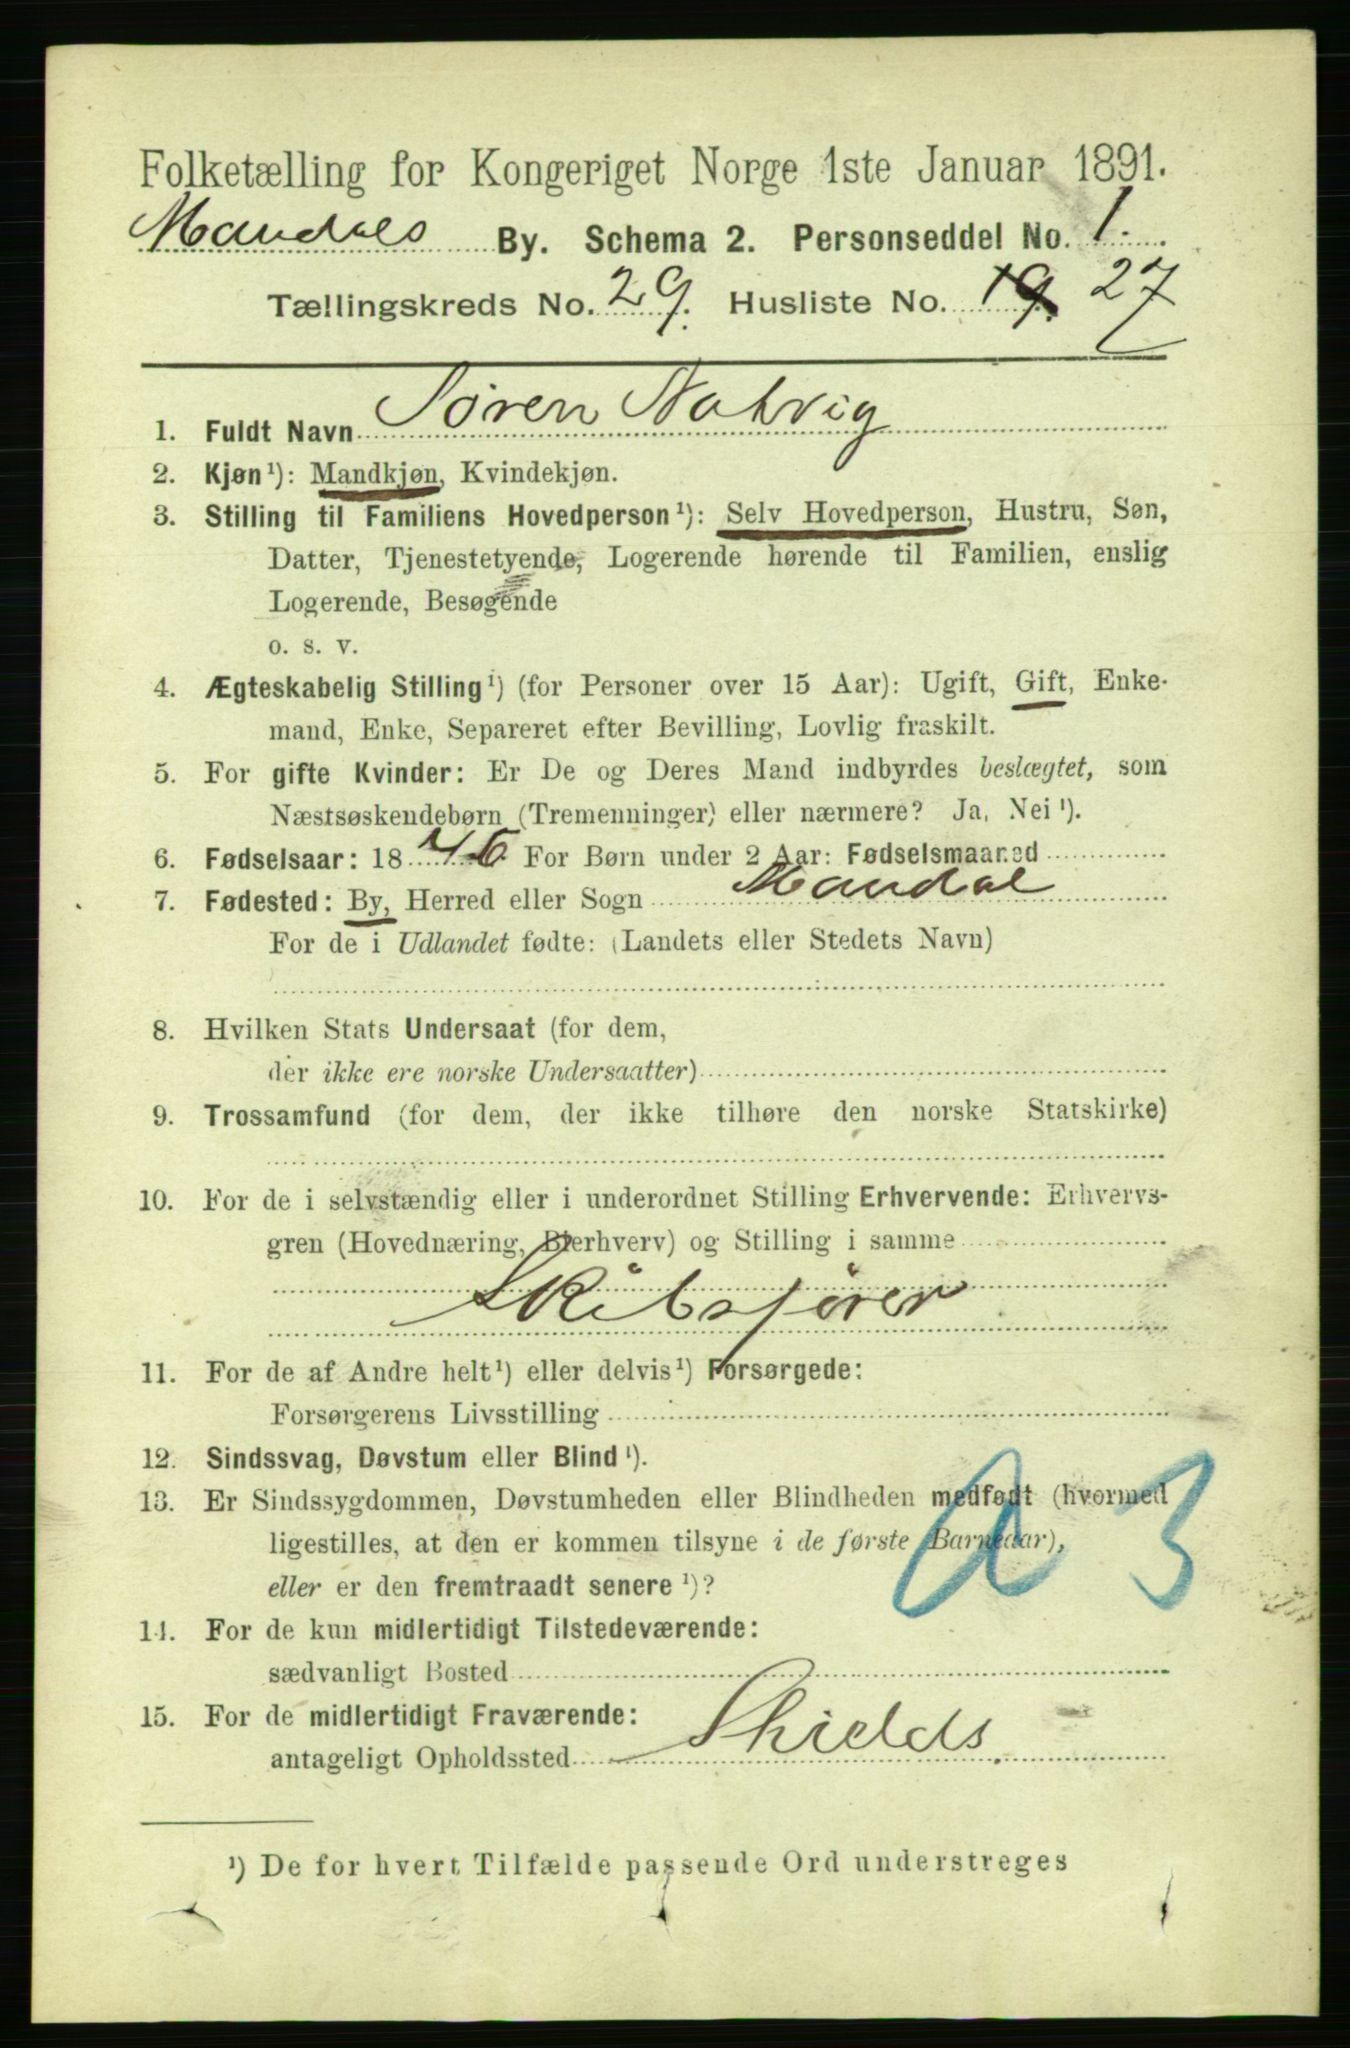 Folketælling for Kongeriget Norge 1ste Januar 1891.
Mandals By. Schema 2. Personseddel No. 1.
Tællingskreds No. 29. Husliste No. 19. 27
1. Fuldt Navn Søren Natvig
2. Kjøn¹): Mandkjøn, Kvindekjøn.
3. Stilling til Familiens Hovedperson¹): Selv Hovedperson, Hustru, Søn,
Datter, Tjenestetyende, Logerende hørende til Familien, enslig
Logerende, Besøgende
o. s. v.
4. Ægteskabelig Stilling¹) (for Personer over 15 Aar): Ugift, Gift, Enke-
mand, Enke, Separeret efter Bevilling, Lovlig fraskilt.
5. For gifte Kvinder: Er De og Deres Mand indbyrdes beslægtet, som
Næstsøskendebørn (Tremenninger) eller nærmere? Ja, Nei¹).
6. Fødselsaar: 1846 For Børn under 2 Aar: Fødselsmaaned
7. Fødested: By, Herred eller Sogn Mandal
For de i Udlandet fødte: (Landets eller Stedets Navn)
8. Hvilken Stats Undersaat (for dem,
der ikke ere norske Undersaatter)
9. Trossamfund (for dem, der ikke tilhøre den norske Statskirke)
10. For de i selvstændig eller i underordnet Stilling Erhvervende: Erhvervs-
gren (Hovednæring, Bierhverv) og Stilling i samme
Skibsfører
11. For de af Andre helt¹) eller delvis¹) Forsørgede:
Forsørgerens Livsstilling
12. Sindssvag, Døvstum eller Blind¹).
13. Er Sindssygdommen, Døvstumheden eller Blindheden medfødt (hvormed
ligestilles, at den er kommen tilsyne i de første Barneaar),
eller er den fremtraadt senere¹)?
a 3
14. For de kun midlertidigt Tilstedeværende:
sædvanligt Bosted
15. For de midlertidigt Fraværende:
antageligt Opholdssted Shields.
¹) De for hvert Tilfælde passende Ord understreges